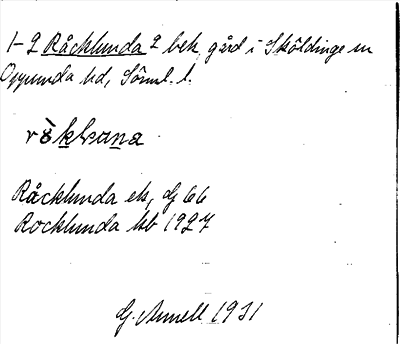 1-2 Råcklunda 2 bek. gård i Sköldinge sn
Oppunda hd, Sörml. l.
Råcklunda ek, Gj 66
Rocklunda kb 1927
G. Annell 1931